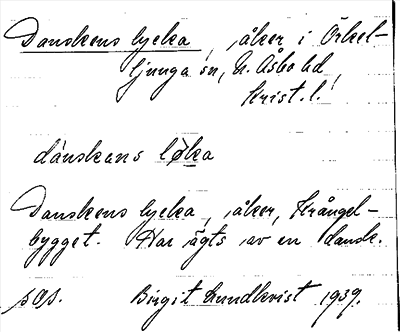 Danskens lycka, åker i Örkel-
ljunga sn, N. Åsbo hd
Krist. l.
dánskans lø̀ka
Danskens lycka, åker, Krångel-
bygget. Har ägts av en dansk.
Birgit Lundkvist 1939.